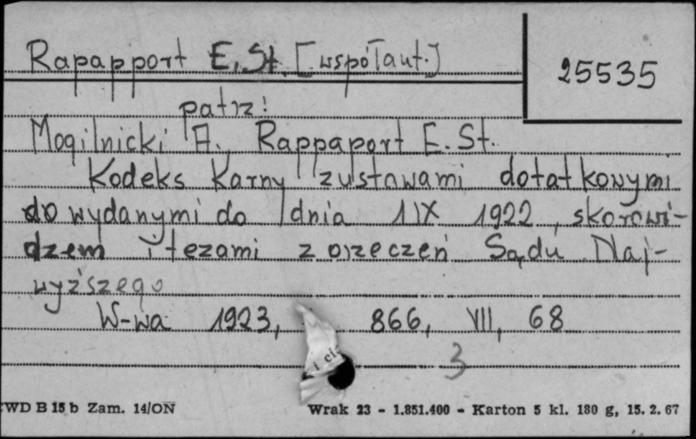 Rapapport E. St. [współaut.]
25535
patrz!
Mogilnicki A., Rappaport E. St.
Kodeks Karny z ustawami dotatkowymi
do wydanymi do dnia 1 IX 1922, skorowi-
dzem i tezami z orzeczeń Sądu Naj-
wyższego
W-wa 1923, 866, VII, 68
i ci
3
ZWD B 15 b Zam. 14/ON Wrak 23 - 1.851.400 - Karton 5 kl. 180 g, 15. 2. 67